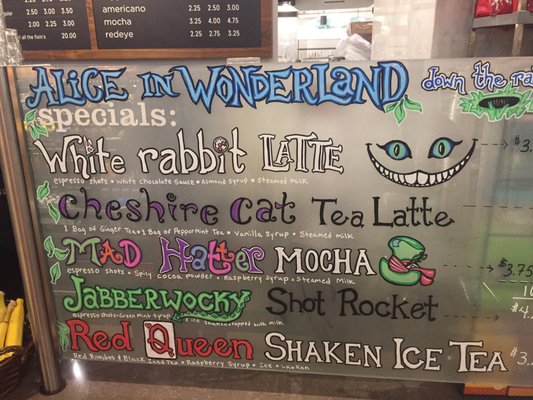 2.50 3.00 3.50
2.50
20.00
americano 2.25 2.50 2.75
mocha 3.25 4.00 4.75
redeye 2.75
Alice in Wonderland
down the ra
specials:
White rabbit LATTE
espresso shots • white chocolate sauce • Almond syrup • Steamed milk
$3.
Cheshire Cat Tea Latte
1 Bag of Ginger Tea • 1 Bag of Peppermint Tea • Vanilla Syrup • Steamed milk
Mad Hatter MOCHA
espresso shots • Spicy cocoa powder • Raspberry syrup • Steamed milk
$3.75
Jabberwocky Shot Rocket
espresso shots • Green Mint Syrup
& ice shaken & topped with milk
Red Queen SHAKEN ICE TEA
Red Rooibos & Black Iced Tea • Raspberry Syrup • Ice • Shaken
$3.